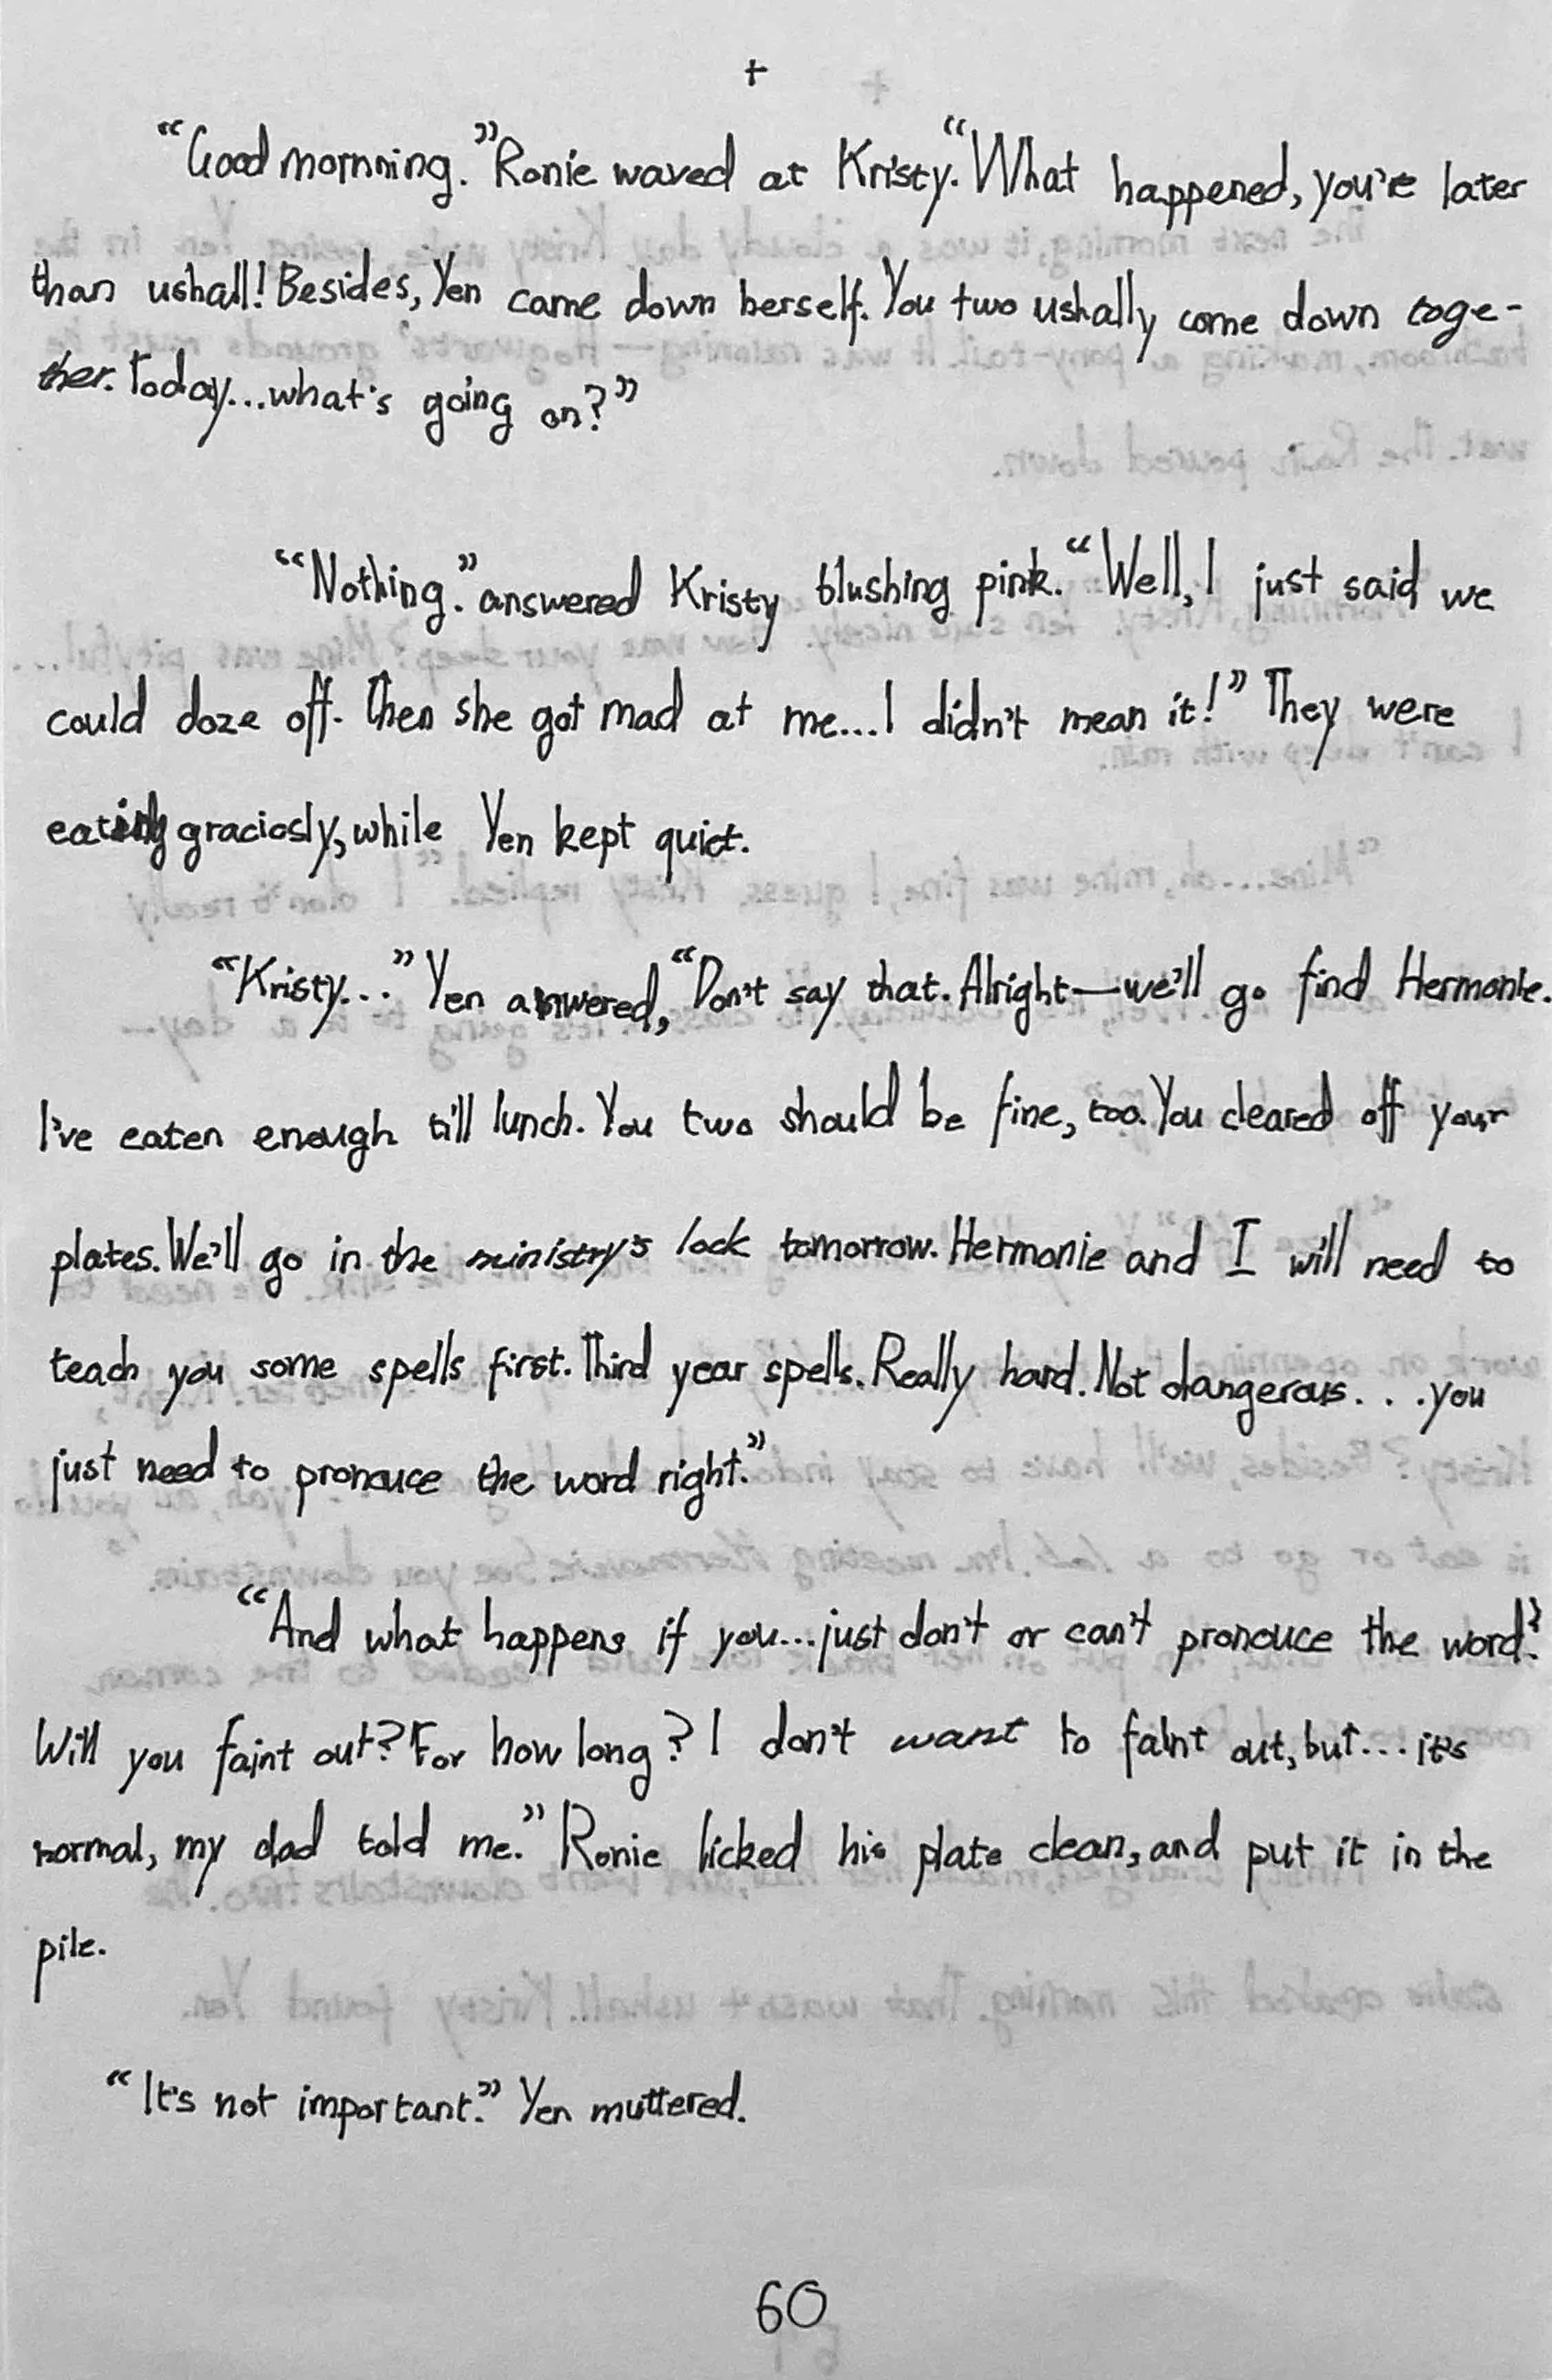 +
“Good mornning.” Ronie waved at Kristy. “What happened, you're later
than ushall! Besides, Yen came down herself. You two ushally come down toge-
ther. Today...what's going on?”
“Nothing.” answered Kristy blushing pink. “Well, I just said we
could doze off. Then she got mad at me...I didn't mean it!” They were
eating graciosly, while Yen kept quiet.
“Kristy...” Yen answered, “Don't say that. Alright—we'll go find Hermonie.
I've eaten enough till lunch. You two should be fine, too. You cleared off your
plates. We'll go in the ministry's lock tomorrow. Hermonie and I will need to
teach you some spells first. Third year spells. Really hard. Not dangerous. . .you
just need to pronouce the word right.”
“And what happens if you...just don't or can't pronouce the word?
Will you faint out? For how long? I don't want to faint out, but... it's
normal, my dad told me.” Ronie licked his plate clean, and put it in the
pile.
“It's not important.” Yen muttered.
60